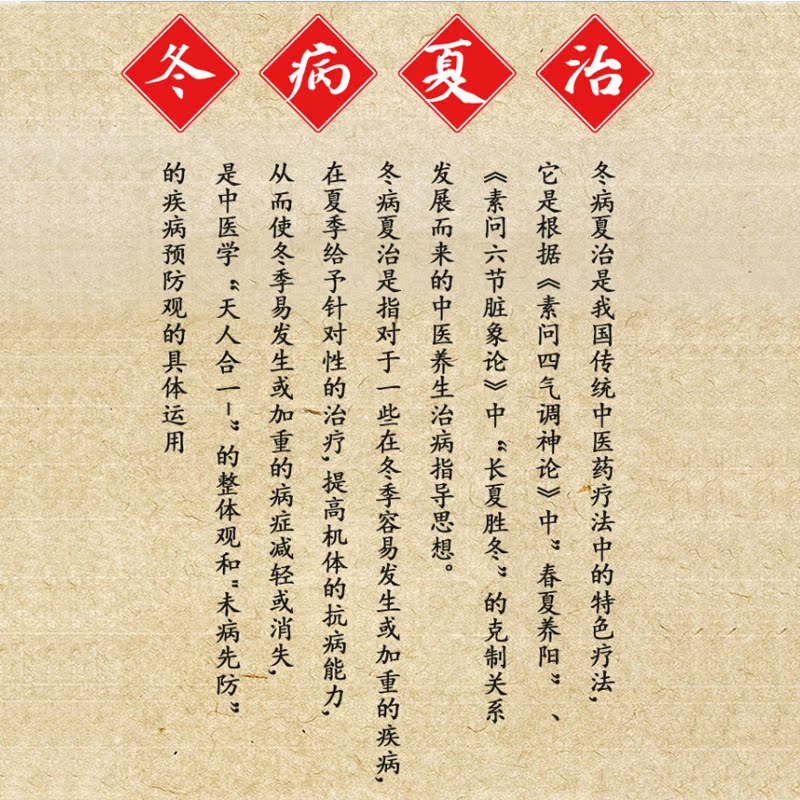 冬病夏治
冬病夏治是我国传统中医药疗法中的特色疗法,
它是根据《素问四气调神论》中"春夏养阳"、
《素问六节脏象论》中"长夏胜冬"的克制关系
发展而来的中医养生治病指导思想。
冬病夏治是指对于一些在冬季容易发生或加重的疾病,
在夏季给予针对性的治疗,提高机体的抗病能力,
从而使冬季易发生或加重的病症减轻或消失,
是中医学"天人合一-"的整体观和"未病先防"
的疾病预防观的具体运用